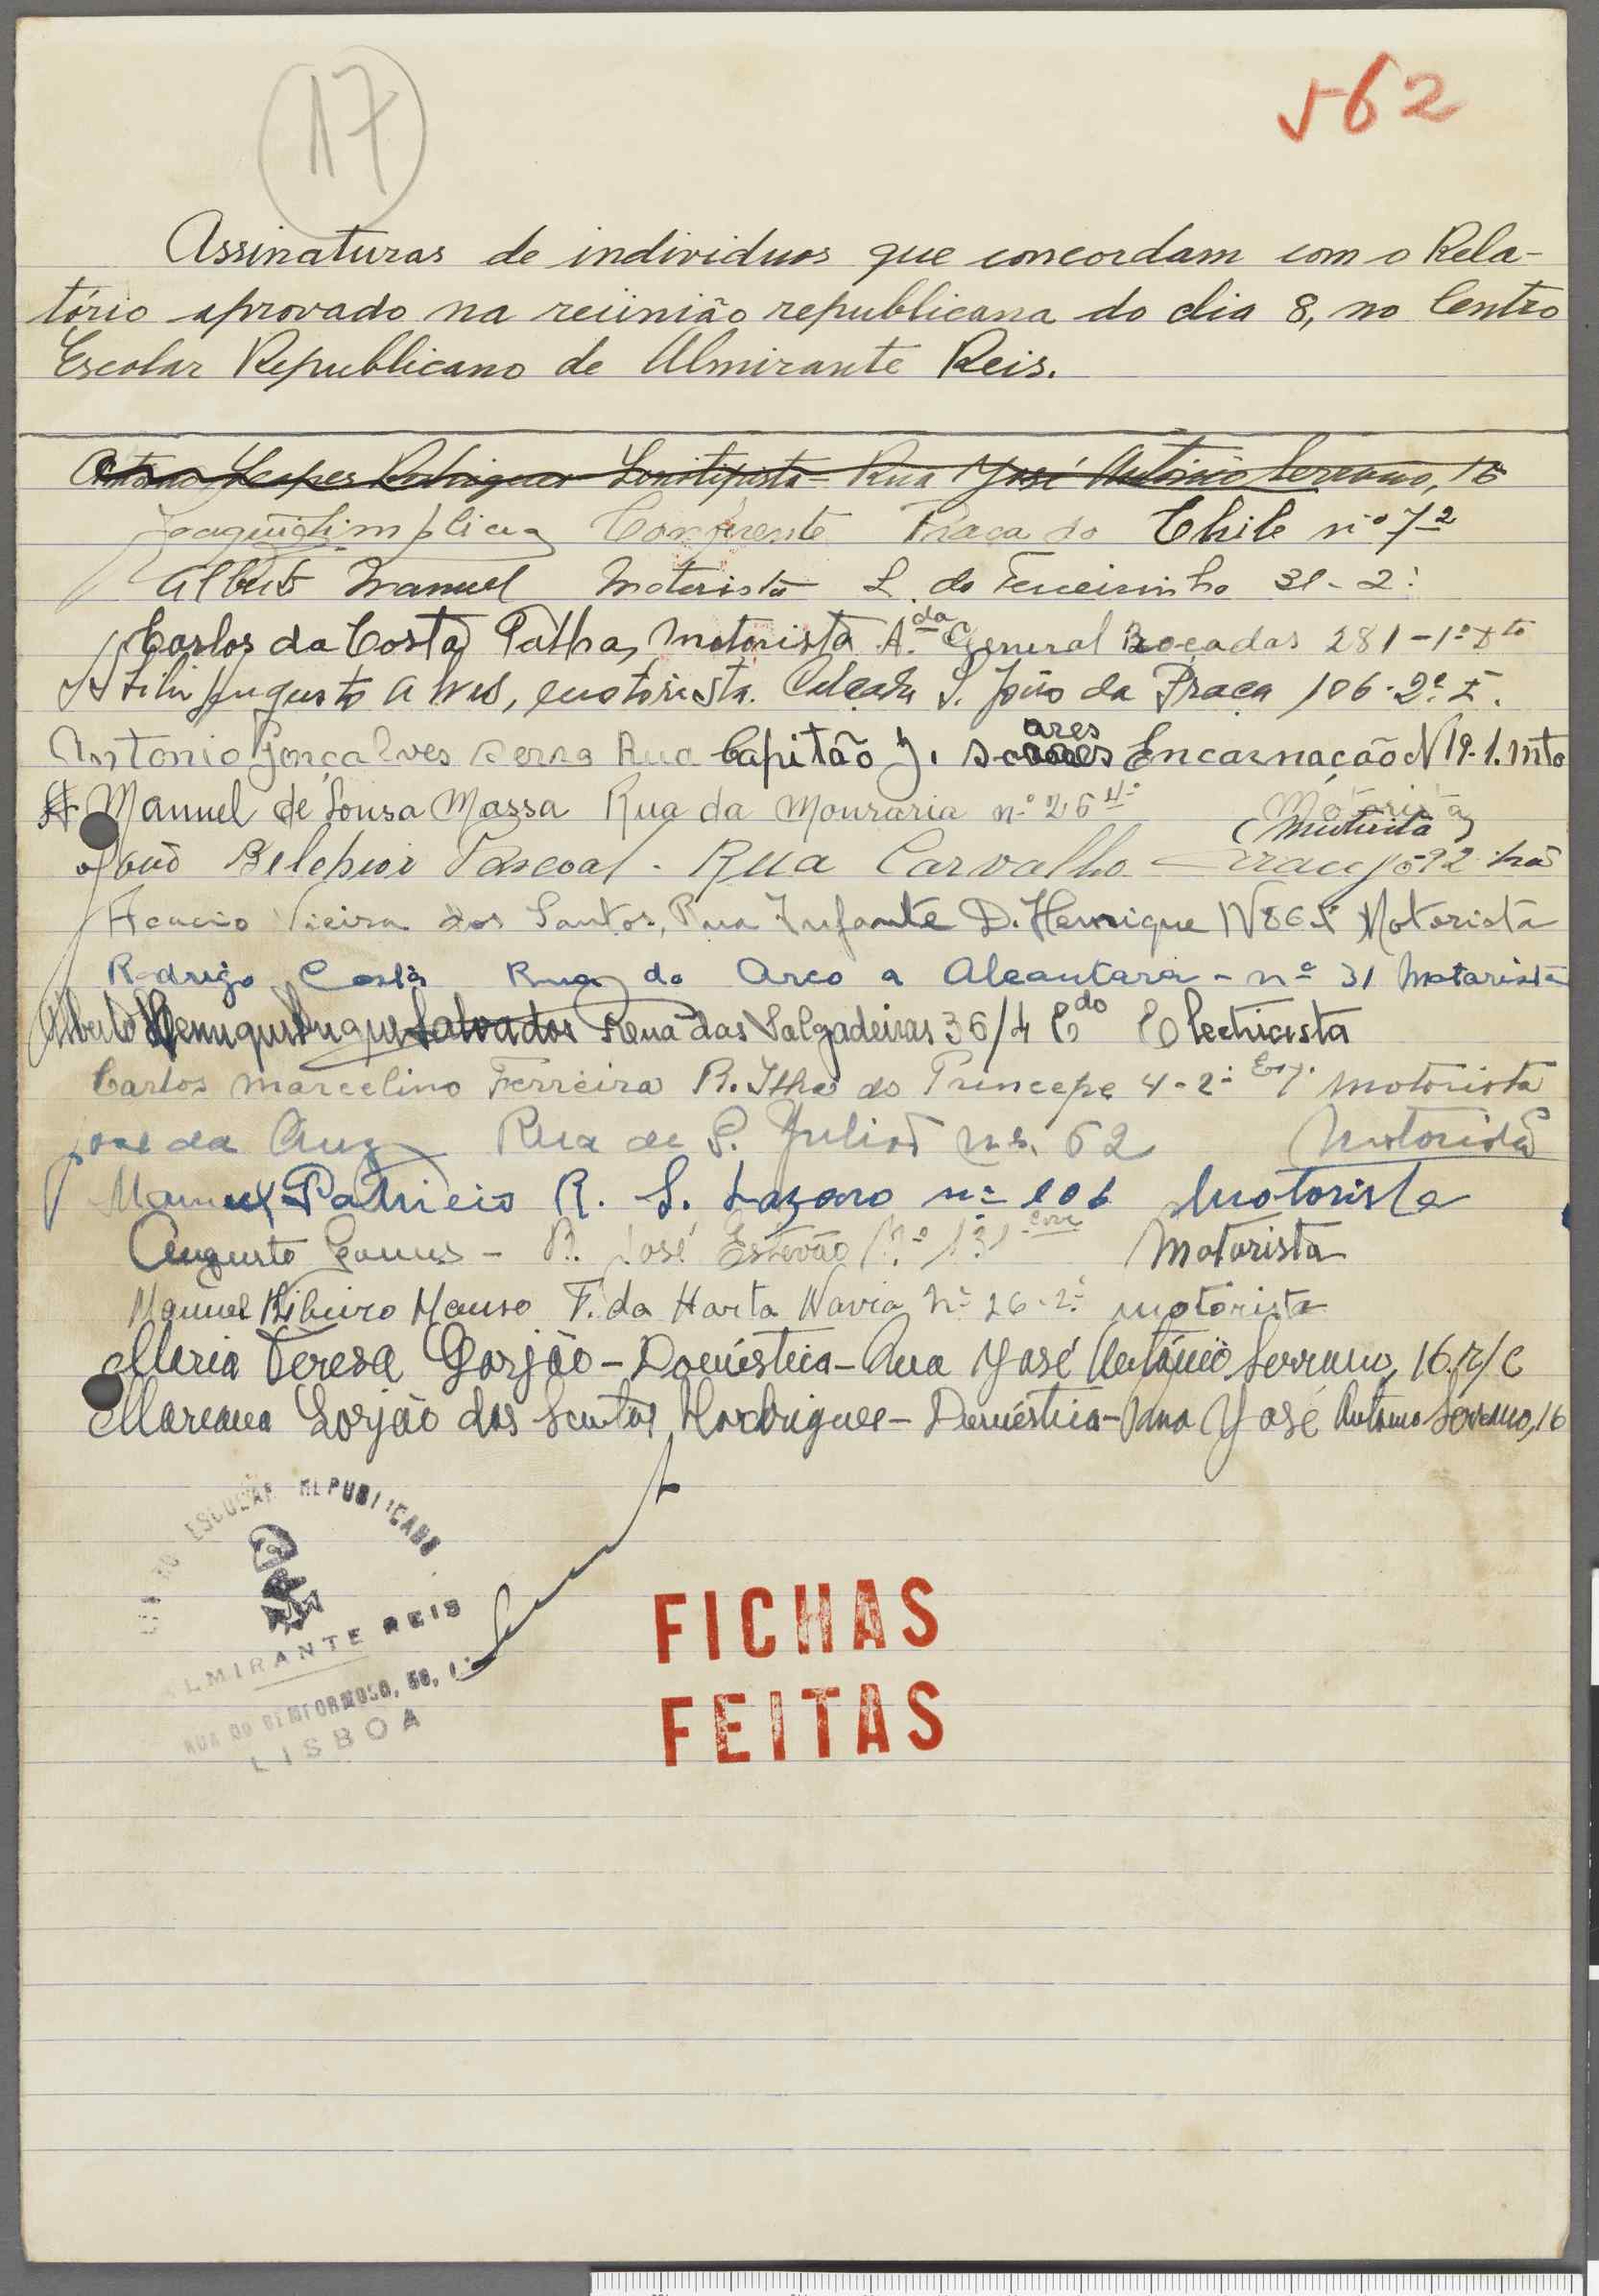 17
562
Assinaturas de individuos que concordam com o Rela-
tório aprovado na reünião republicana do dia 8, no Centro
Escolar Republicano de Almirante Reis.
Rodrigues Linotipista - Rua José António Serrano, 16
Conferente Praça do Chile nº 7-2
Alberto Manuel Motorista L. do Terreirinho 31-2º
Carlos da Costa Palha, Motorista A.da General Roçadas 281-1º Dto
Augusto Alves, motorista. Calçada S. João da Praça 106-2º E.
Antonio Gonçalves Serra Rua Capitão J. Soares ares Encarnação N 19-1. Mto
Manuel de Sousa Massa Rua da Mouraria nº 26 4º Motorista
João Belchior Pascoal - Rua Carvalho Araujo 92 (Motorista)
Acacio Vieira dos Santos, Rua Infante D. Henrique Nº 86 Motorista
Rodrigo Costa Rua do Arco a Alcantara - nº 31 Motarista
Alberto Henrique Duque Salvador Rua das Salgadeiras 36/4 E.do Electricista
Carlos Marcelino Ferreira R. Ilha do Princepe 4-2º Esq. motorista
José da Cruz Rua de S. Julião nº 62 Motorista
Manuel Patricio R. S. Lazaro nº 106 Motorista
Augusto Gomes - R. José Estevão Nº 131 Motarista
Manuel Ribeiro Manso T. da Horta Navia Nº 26-2º motorista
Maria Teresa Gorjão - Doméstica - Rua José António Serrano, 16, R/C
Mariana Gorjão dos Santos Rodrigues - Doméstica - Rua José Antonio Serrano, 16
CENTRO ESCOLAR REPUBLICANO
ALMIRANTE REIS
RUA DO BENFORMOSO, 50, 1.º
LISBOA
FICHAS
FEITAS